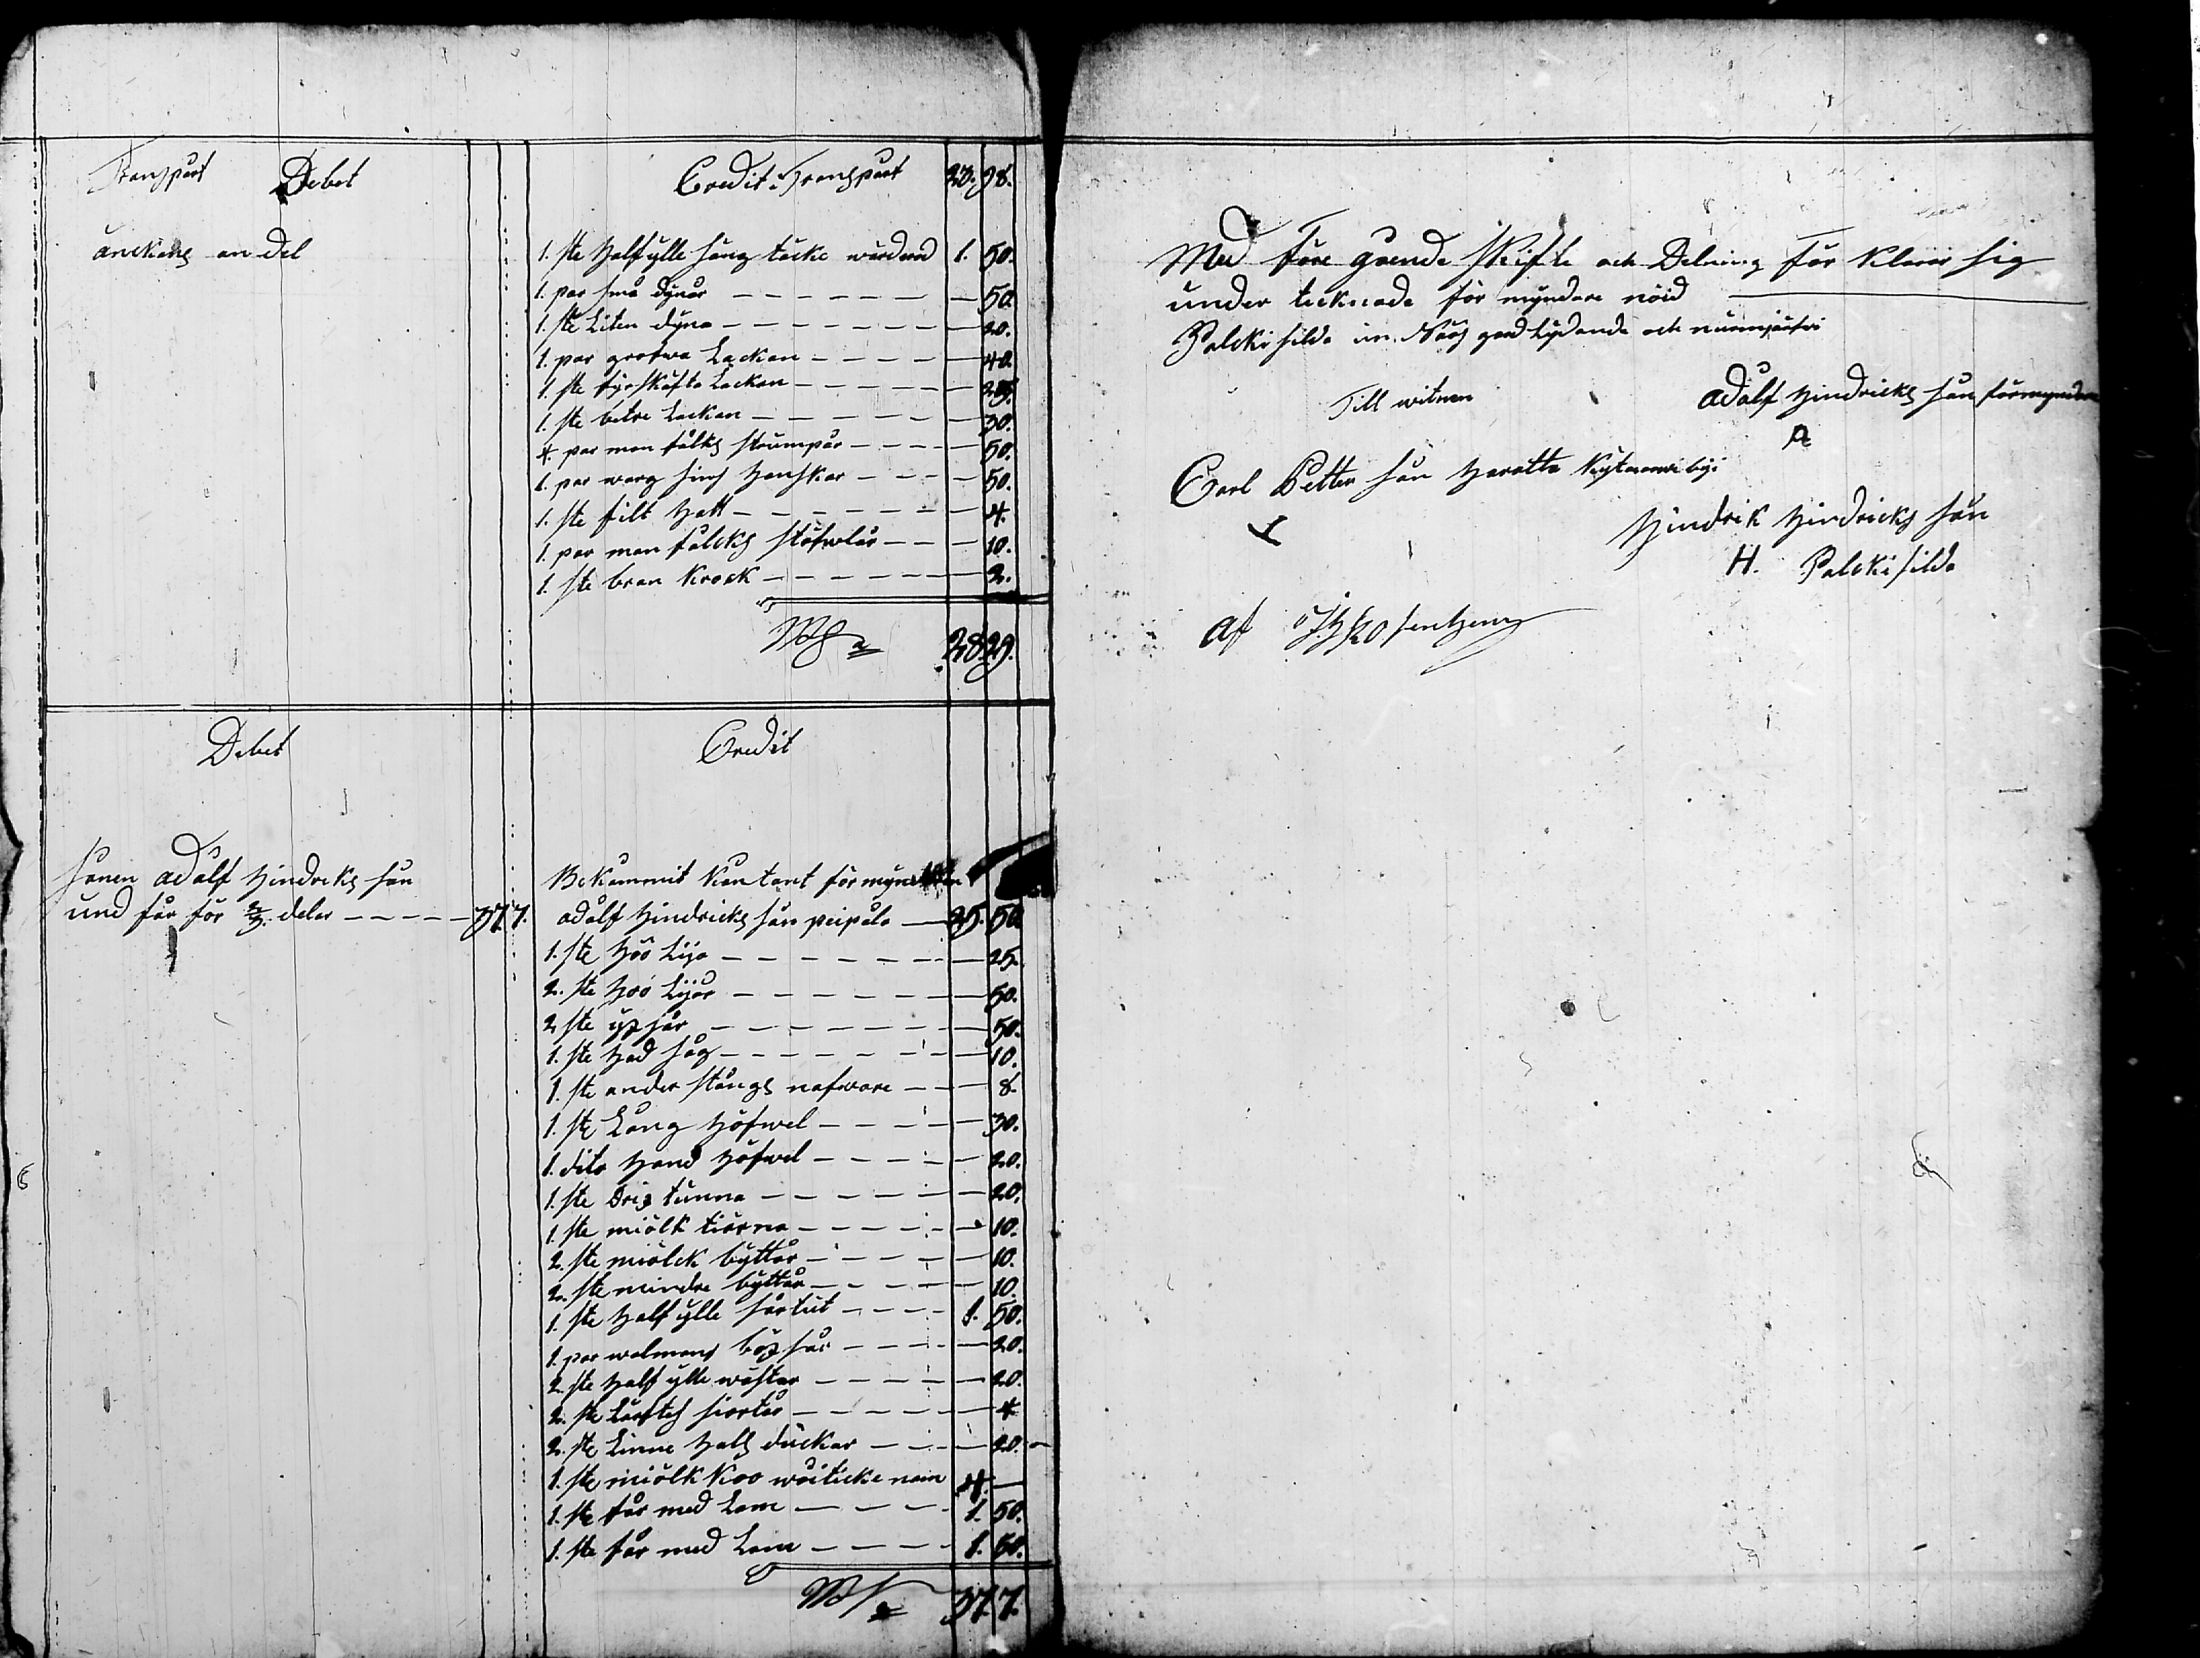 Transport Debet
änckans an del
Credit Transport 23. 98.
1. ste Halfylle säng täcke wärderad 1. 50.
1. par små dynår 50.
1. ste Liten dyna 20.
1. par grofwa Lackan 40.
1. ste fyrskäfta Lackan 25.
1. ste betre Lackan 30.
4. par man fålks strumpår 50.
1. par warg sins Hanskar 50.
1. ste filt Hatt 4.
1. par man fålcks stöfwlår 10.
1. ste bran krock 2.
28. 29.
Debet
Credit
sonen adolf Hindricks son
und får för 2/3. delar 37. 7.
Bekommit Kontant förmyndaren
adolf Hindricks son peipola 25. 50.
1. ste Höö Lija 25.
2. ste Höö Lijor 50.
2 ste yxsår 50.
1. ste Had såg 10.
1. ste ander stångs nafware 8.
1. ste Lång Höfwel 30.
1. dito Hand Höfwel 20.
1. ste Dricks tunna 20.
1. ste miölk tiärna 10.
2. ste miölck byttår 10.
2. ste mindre byttår 10.
1. ste Half ylle sårtut 1. 50.
1. par walmans böxsår 20.
2. ste Half ylle wästar 20.
2. ste Lärfts siortår 4
2. ste Linne Hals dückar 20.
1. ste miölk Koo wäiticke nam 4. —
1. ste får med Lam 1. 50.
1. ste får med Lam 1. 50.
37. 7.
Med före gående skifte och Delning för klarar sig
under tecknade för myndare nöid
Palckisilda in Nääs gård Lydande och nurmijärfwi
Till witnen
adolf Hindricks son förmyndare
A
Carl Petter son Haratta Kytannebyi
Hindrik Hindricks son
H. Palckisilda
af